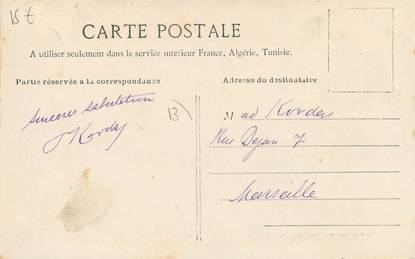 15 t
CARTE POSTALE
A utiliser seulement dans le service intérieur France, Algérie, Tunisie.
Partie réservée à la correspondance
Adresse du destinataire
sincères salutation
Kordes
13
M ad Kordes
Rue Dejan 7
Marseille